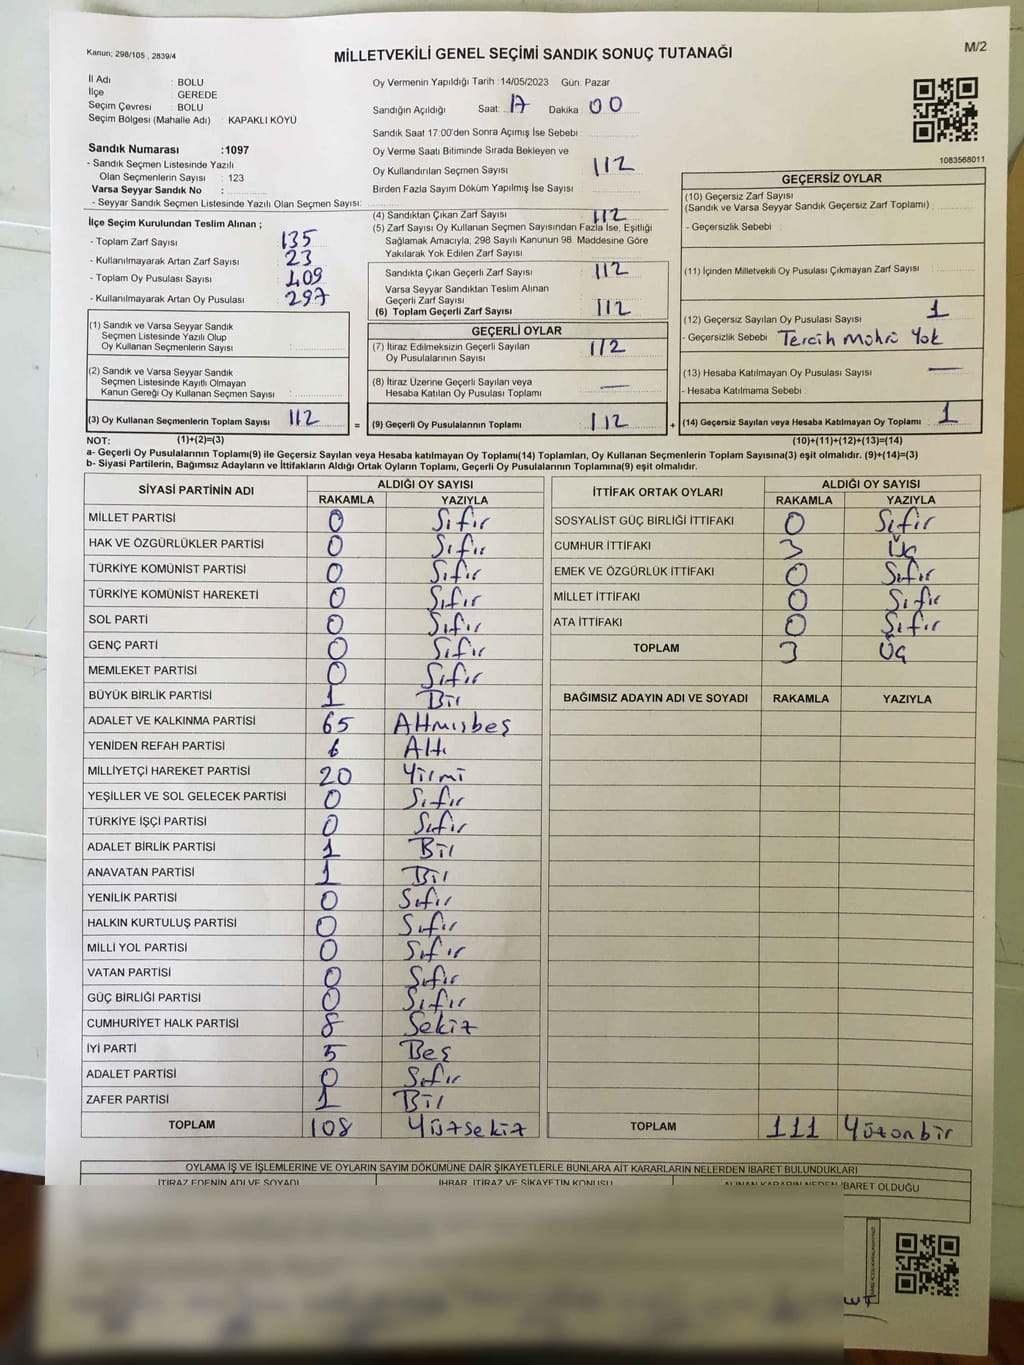 Kanun; 298/105 , 2839/4
MİLLETVEKİLİ GENEL SEÇİMİ SANDIK SONUÇ TUTANAĞI
M/2
İl Adı : BOLU
İlçe : GEREDE
Seçim Çevresi : BOLU
Seçim Bölgesi (Mahalle Adı) : KAPAKLI KÖYÜ
Sandık Numarası :1097
- Sandık Seçmen Listesinde Yazılı
Olan Seçmenlerin Sayısı : 123
Varsa Seyyar Sandık No :
- Seyyar Sandık Seçmen Listesinde Yazılı Olan Seçmen Sayısı:
Oy Vermenin Yapıldığı Tarih :14/05/2023 Gün: Pazar
Sandığın Açıldığı Saat: 17 Dakika 00
Sandık Saat 17:00'den Sonra Açımış İse Sebebi
Oy Verme Saati Bitiminde Sırada Bekleyen ve
Oy Kullandırılan Seçmen Sayısı 112
Birden Fazla Sayım Döküm Yapılmış İse Sayısı
1083568011
İlçe Seçim Kurulundan Teslim Alınan ;
- Toplam Zarf Sayısı : 135
- Kullanılmayarak Artan Zarf Sayısı : 23
- Toplam Oy Pusulası Sayısı : 409
- Kullanılmayarak Artan Oy Pusulası : 297
(1) Sandık ve Varsa Seyyar Sandık
Seçmen Listesinde Yazılı Olup
Oy Kullanan Seçmenlerin Sayısı :
(2) Sandık ve Varsa Seyyar Sandık
Seçmen Listesinde Kayıtlı Olmayan
Kanun Gereği Oy Kullanan Seçmen Sayısı :
(3) Oy Kullanan Seçmenlerin Toplam Sayısı 112
(4) Sandıktan Çıkan Zarf Sayısı 112
(5) Zarf Sayısı Oy Kullanan Seçmen Sayısından Fazla İse, Eşitliği
Sağlamak Amacıyla; 298 Sayılı Kanunun 98. Maddesine Göre
Yakılarak Yok Edilen Zarf Sayısı
Sandıkta Çıkan Geçerli Zarf Sayısı 112
Varsa Seyyar Sandıktan Teslim Alınan
Geçerli Zarf Sayısı
(6) Toplam Geçerli Zarf Sayısı 112
GEÇERLİ OYLAR
(7) İtiraz Edilmeksizin Geçerli Sayılan
Oy Pusulalarının Sayısı 112
(8) İtiraz Üzerine Geçerli Sayılan veya
Hesaba Katılan Oy Pusulası Toplamı —
= (9) Geçerli Oy Pusulalarının Toplamı 112
GEÇERSİZ OYLAR
(10) Geçersiz Zarf Sayısı
(Sandık ve Varsa Seyyar Sandık Geçersiz Zarf Toplamı) :
- Geçersizlik Sebebi :
(11) İçinden Milletvekili Oy Pusulası Çıkmayan Zarf Sayısı
(12) Geçersiz Sayılan Oy Pusulası Sayısı 1
- Geçersizlik Sebebi : Tercih Mührü Yok
(13) Hesaba Katılmayan Oy Pusulası Sayısı —
- Hesaba Katılmama Sebebi :
+ (14) Geçersiz Sayılan veya Hesaba Katılmayan Oy Toplamı 1
NOT: (1)+(2)=(3)
(10)+(11)+(12)+(13)=(14)
a- Geçerli Oy Pusulalarının Toplamı(9) ile Geçersiz Sayılan veya Hesaba katılmayan Oy Toplamı(14) Toplamları, Oy Kullanan Seçmenlerin Toplam Sayısına(3) eşit olmalıdır. (9)+(14)=(3)
b- Siyasi Partilerin, Bağımsız Adayların ve İttifakların Aldığı Ortak Oyların Toplamı, Geçerli Oy Pusulalarının Toplamına(9) eşit olmalıdır.
SİYASİ PARTİNİN ADI ALDIĞI OY SAYISI
RAKAMLA YAZIYLA
MİLLET PARTİSİ 0 Sıfır
HAK VE ÖZGÜRLÜKLER PARTİSİ 0 Sıfır
TÜRKİYE KOMÜNİST PARTİSİ 0 Sıfır
TÜRKİYE KOMÜNİST HAREKETİ 0 Sıfır
SOL PARTİ 0 Sıfır
GENÇ PARTİ 0 Sıfır
MEMLEKET PARTİSİ 0 Sıfır
BÜYÜK BİRLİK PARTİSİ 1 Bir
ADALET VE KALKINMA PARTİSİ 65 Altmışbeş
YENİDEN REFAH PARTİSİ 6 Altı
MİLLİYETÇİ HAREKET PARTİSİ 20 Yirmi
YEŞİLLER VE SOL GELECEK PARTİSİ 0 Sıfır
TÜRKİYE İŞÇİ PARTİSİ 0 Sıfır
ADALET BİRLİK PARTİSİ 1 Bir
ANAVATAN PARTİSİ 1 Bir
YENİLİK PARTİSİ 0 Sıfır
HALKIN KURTULUŞ PARTİSİ 0 Sıfır
MİLLİ YOL PARTİSİ 0 Sıfır
VATAN PARTİSİ 0 Sıfır
GÜÇ BİRLİĞİ PARTİSİ 0 Sıfır
CUMHURİYET HALK PARTİSİ 8 Sekiz
İYİ PARTİ 5 Beş
ADALET PARTİSİ 0 Sıfır
ZAFER PARTİSİ 1 Bir
TOPLAM 108 Yüzsekiz
İTTİFAK ORTAK OYLARI ALDIĞI OY SAYISI
RAKAMLA YAZIYLA
SOSYALİST GÜÇ BİRLİĞİ İTTİFAKI 0 Sıfır
CUMHUR İTTİFAKI 3 Üç
EMEK VE ÖZGÜRLÜK İTTİFAKI 0 Sıfır
MİLLET İTTİFAKI 0 Sıfır
ATA İTTİFAKI 0 Sıfır
TOPLAM 3 Üç
BAĞIMSIZ ADAYIN ADI VE SOYADI RAKAMLA YAZIYLA
TOPLAM 111 Yüzonbir
OYLAMA İŞ VE İŞLEMLERİNE VE OYLARIN SAYIM DÖKÜMÜNE DAİR ŞİKAYETLERLE BUNLARA AİT KARARLARIN NELERDEN İBARET BULUNDUKLARI
İTİRAZ EDENİN ADI VE SOYADI İHBAR, İTİRAZ VE ŞİKAYETİN KONUSU ALINAN KARARIN NEDEN İBARET OLDUĞU